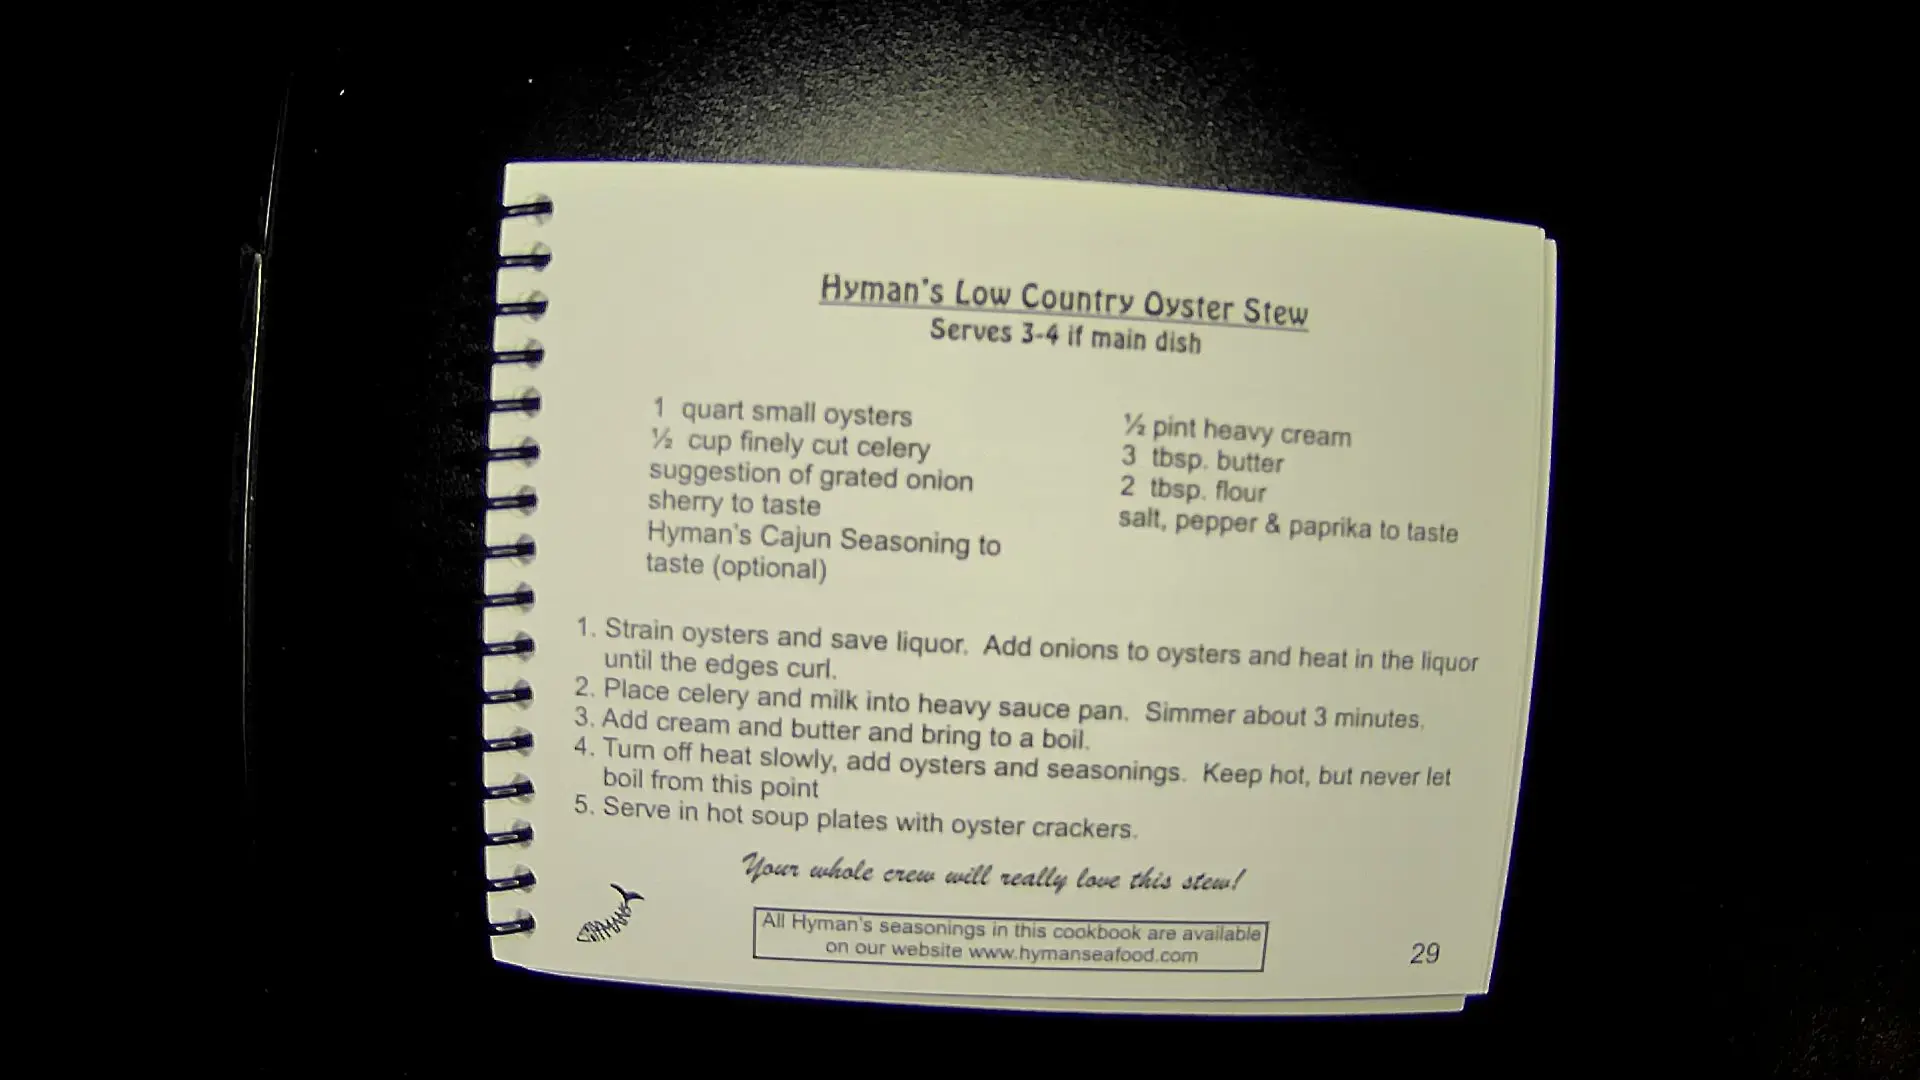 Hyman's Low Country Oyster Stew
Serves 3-4 if main dish
1 quart small oysters
½ cup finely cut celery
suggestion of grated onion
sherry to taste
Hyman's Cajun Seasoning to
taste (optional)
½ pint heavy cream
3 tbsp. butter
2 tbsp. flour
salt, pepper & paprika to taste
1. Strain oysters and save liquor. Add onions to oysters and heat in the liquor
until the edges curl.
2. Place celery and milk into heavy sauce pan. Simmer about 3 minutes.
3. Add cream and butter and bring to a boil.
4. Turn off heat slowly, add oysters and seasonings. Keep hot, but never let
boil from this point
5. Serve in hot soup plates with oyster crackers.
Your whole crew will really love this stew!
HYMANS
All Hyman's seasonings in this cookbook are available
on our website www.hymanseafood.com
29